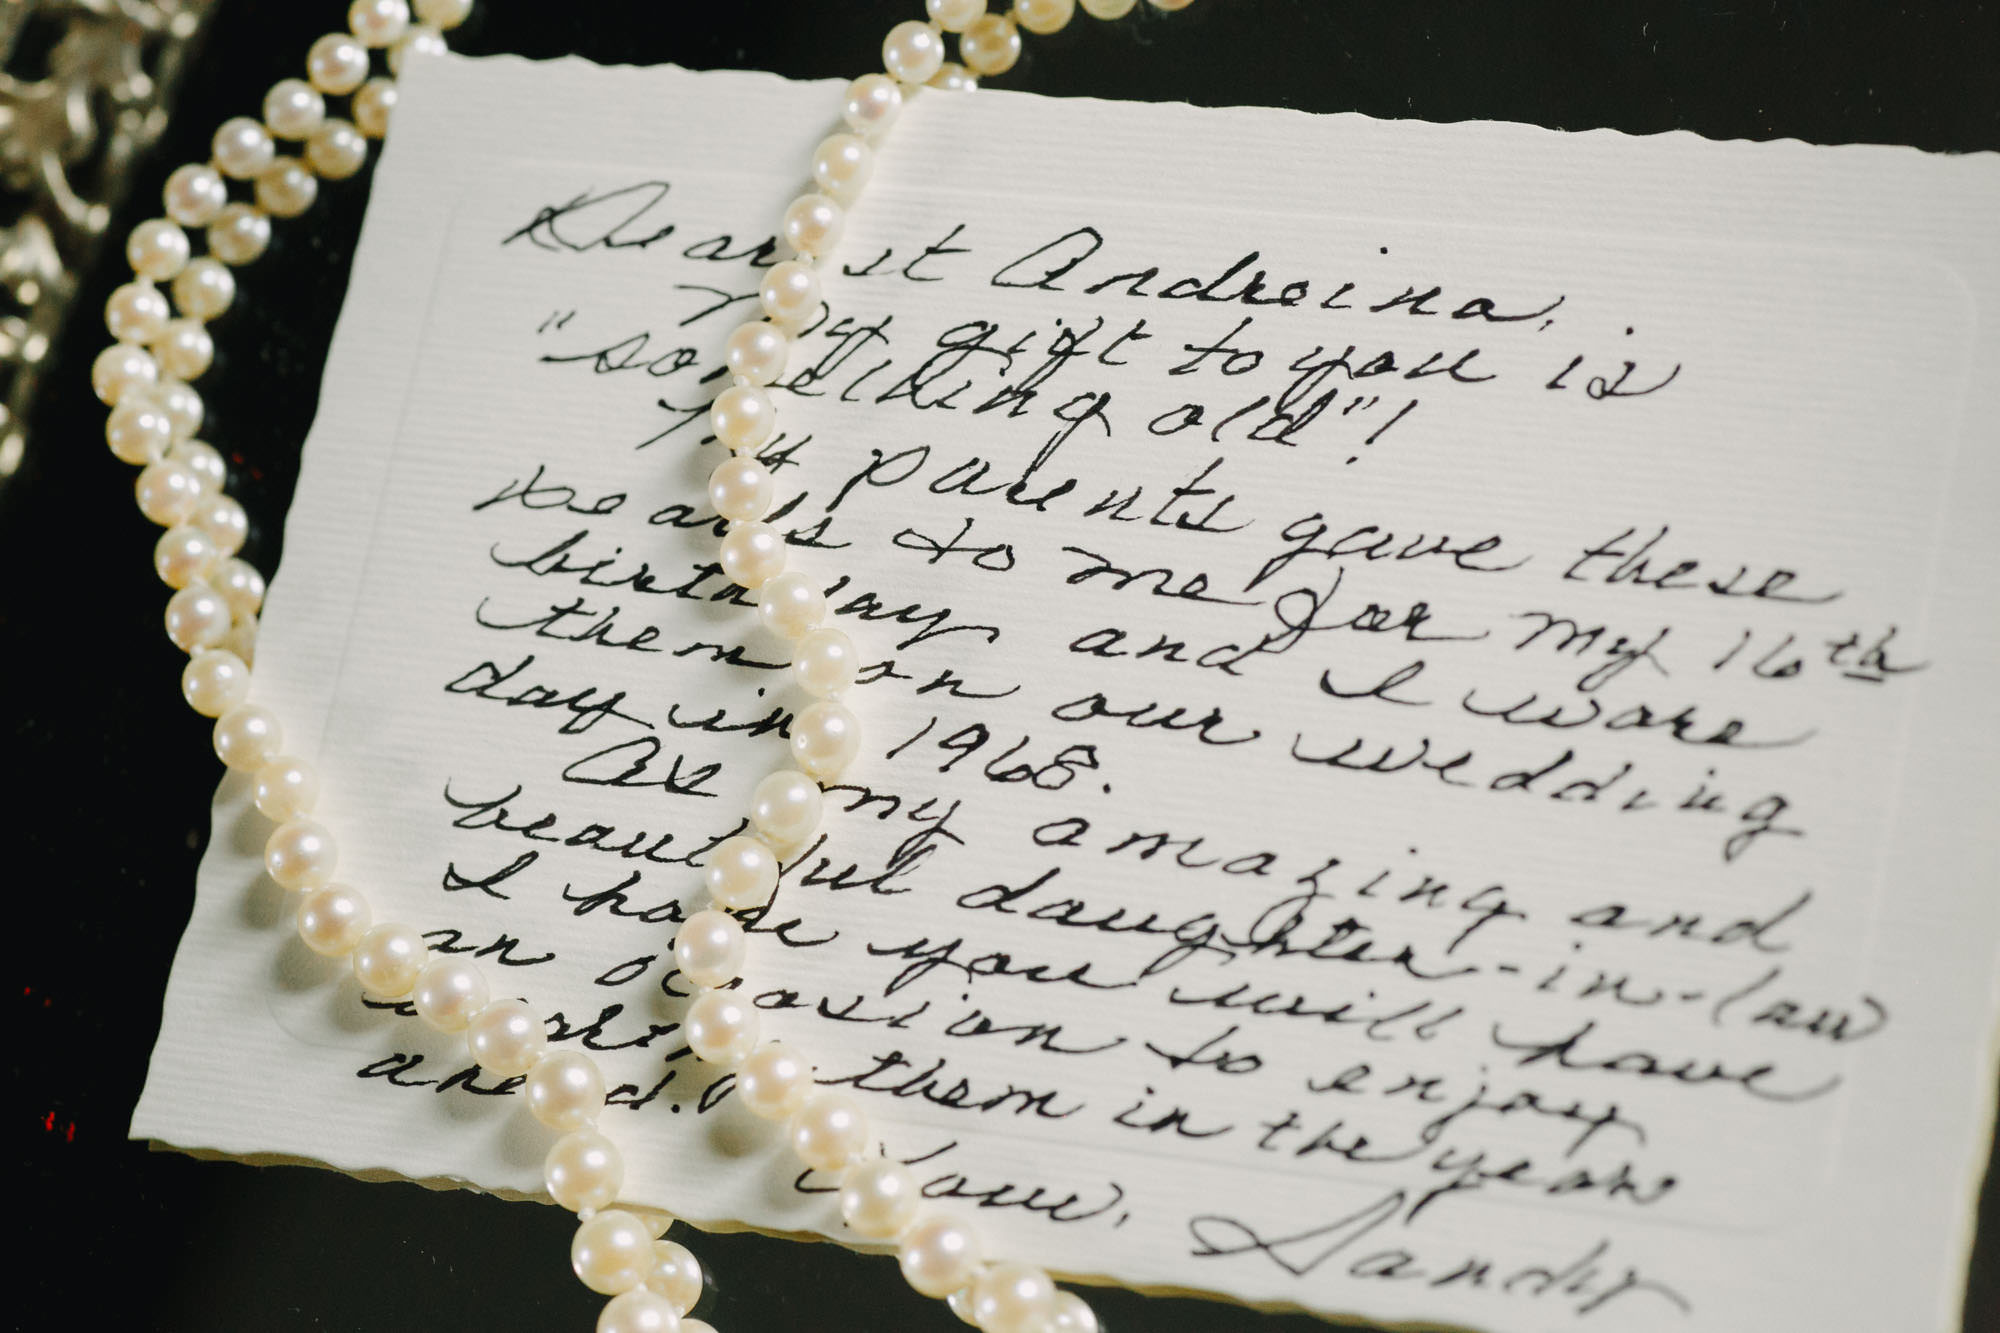 Dearest Andreina,
My gift to you is
"something old"!
My parents gave these
pearls to me for my 16th
birthday and I wore
them on our wedding
day in 1968.
As my amazing and
beautiful daughter-in-law
I hope you will have
an occasion to enjoy
wearing them in the years
ahead.
Love, Sandy